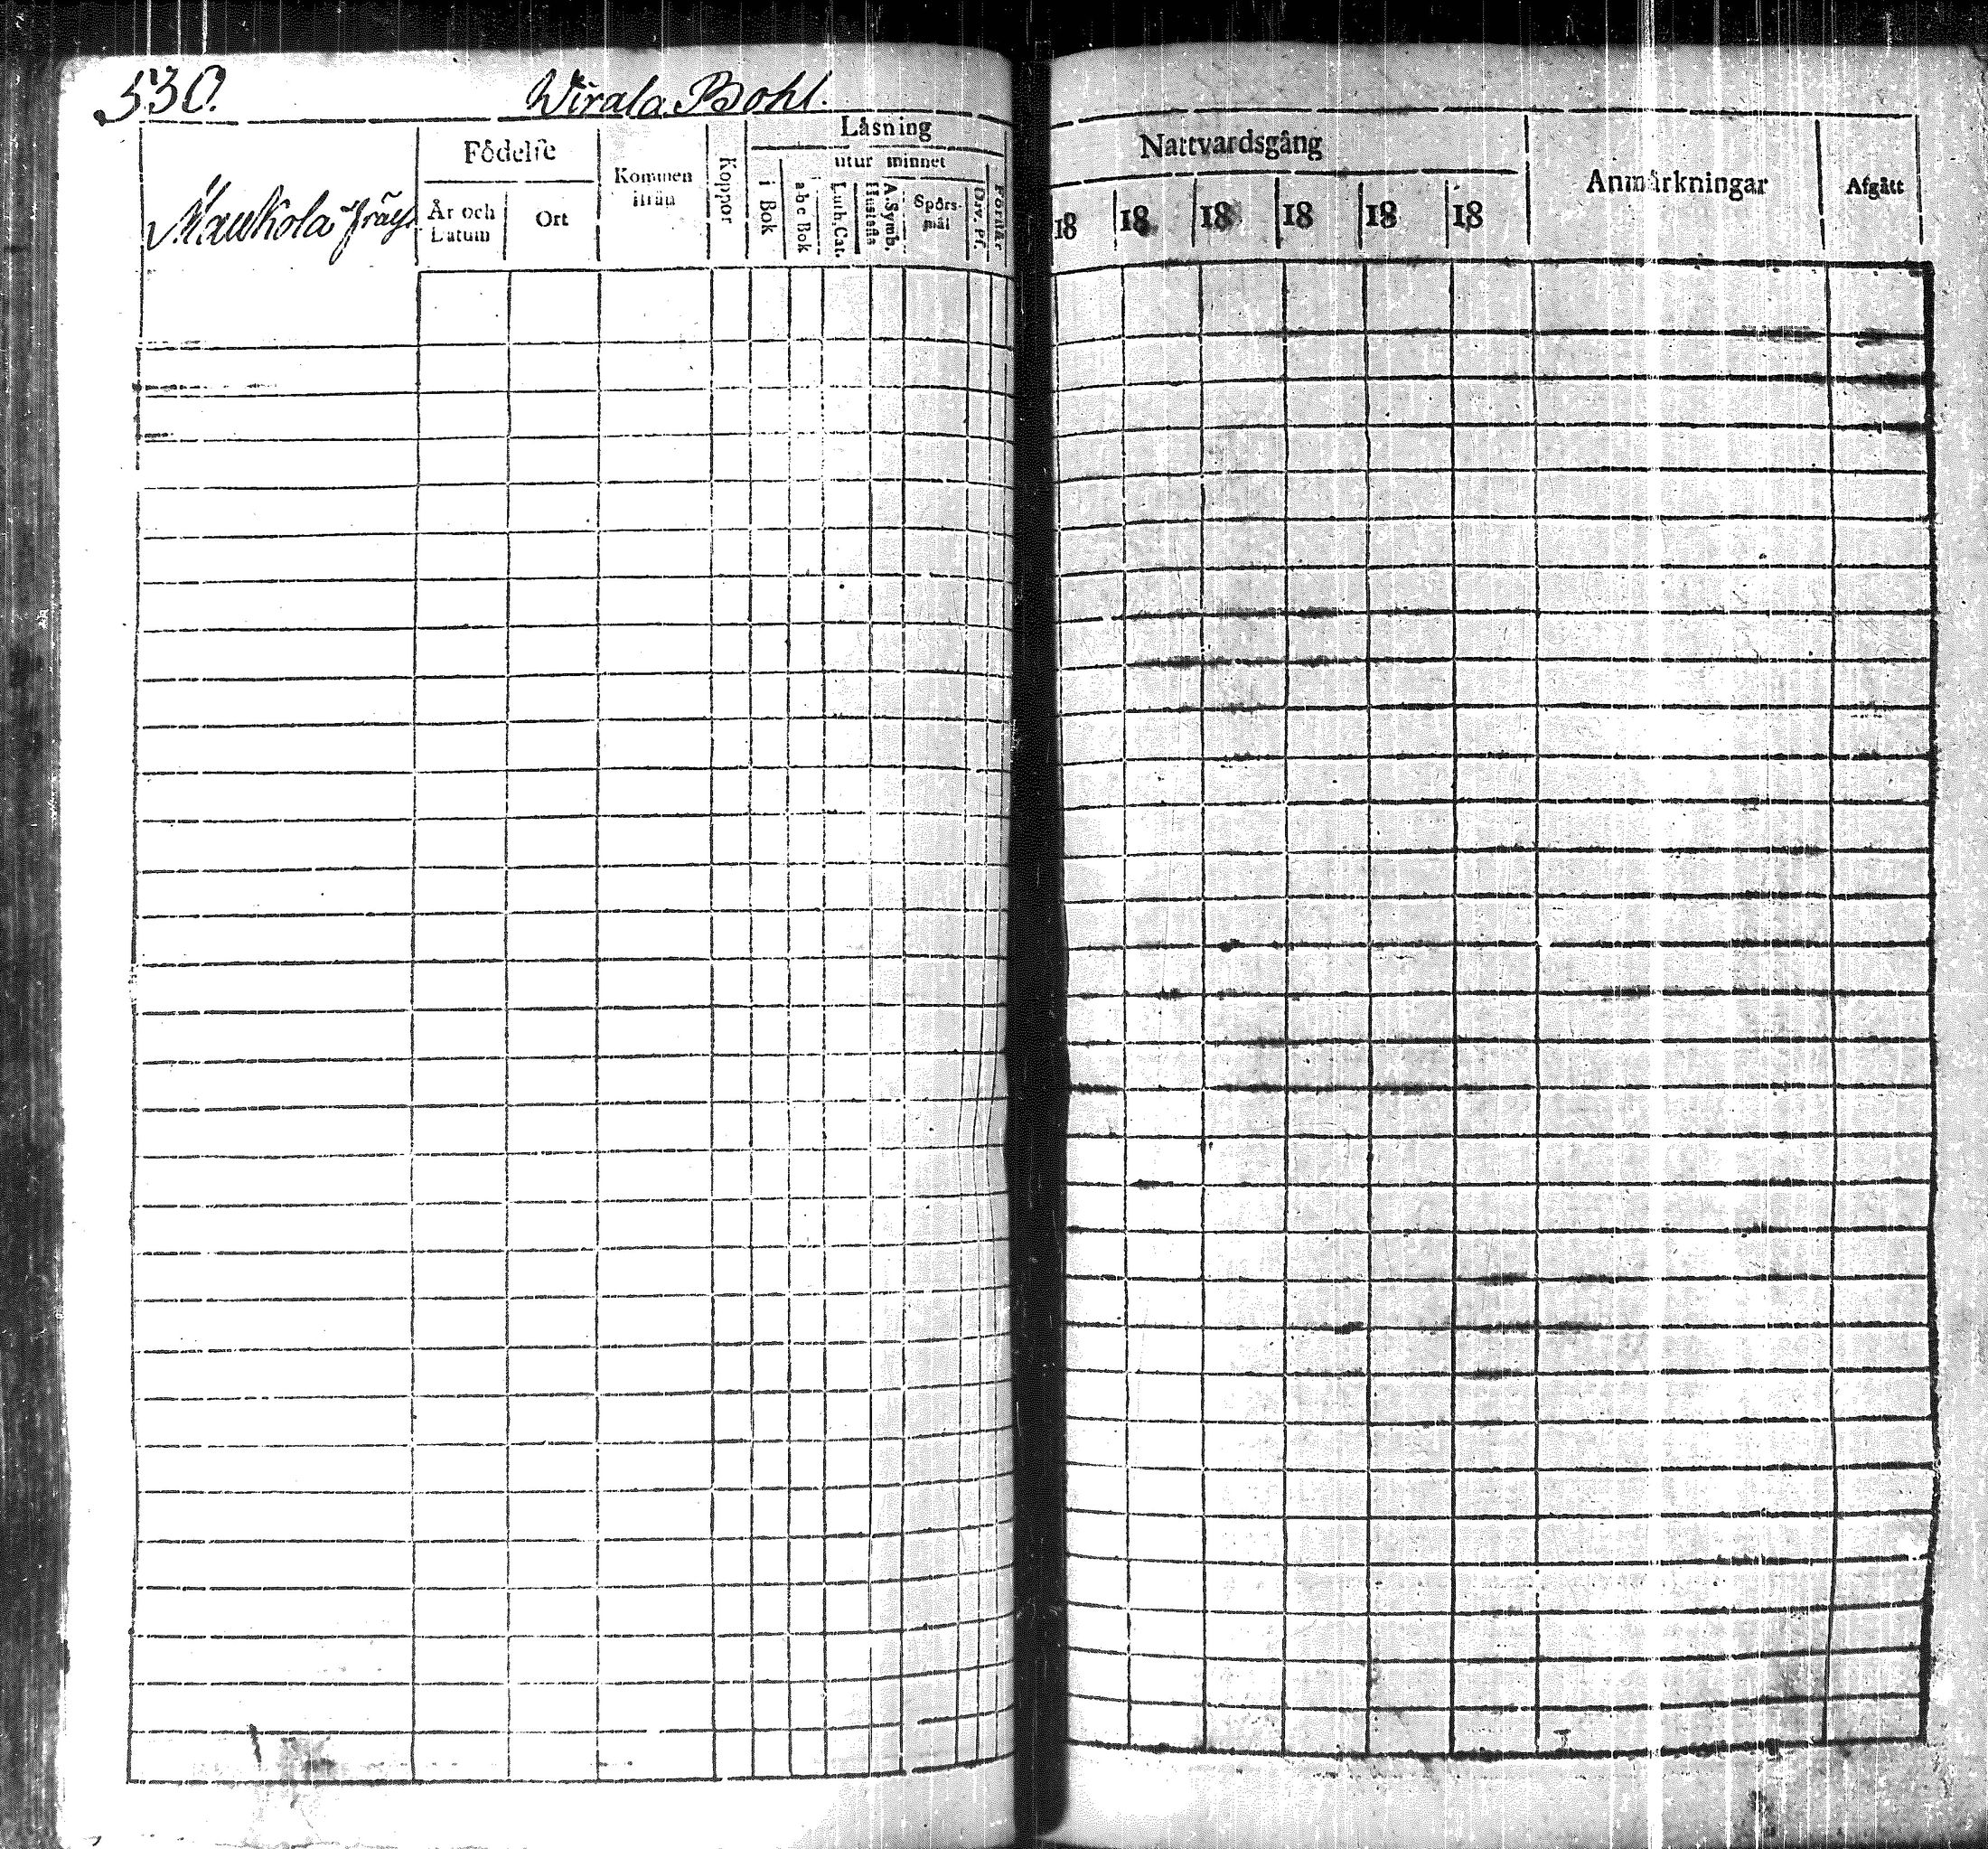 530.
Wirala Bohl.
Födelse
Kommen ifrån
Koppor
Läsning
utur minnet
i Bok
a-b-c Bok
Luth. Cat.
A. Symb. Hustafla
Spörs-mål
Dav. Ps.
Förstår
År och Datum
Ort
Maukola
Nattvardsgång
18 18 18 18 18 18
Anmärkningar
Afgått